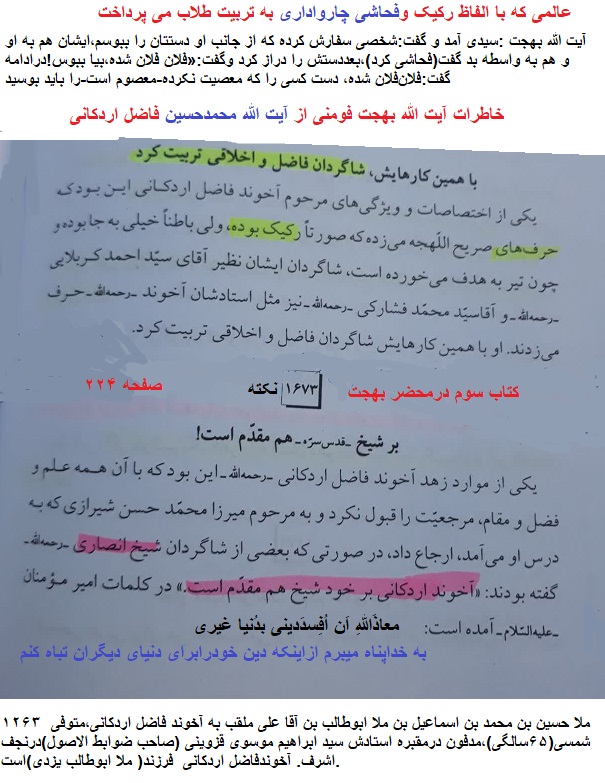 عالمی که با الفاظ رکیک وفحاشی چارواداری به تربیت طلاب می پرداخت
آیت الله بهجت :سیدی آمد و گفت:شخصی سفارش کرده که از جانب او دستتان را ببوسم،ایشان هم به او
و هم به واسطه بد گفت(فحاشی کرد)،بعددستش را دراز کرد وگفت:«فلان فلان شده،بیا ببوس!درادامه
گفت:فلان‌فلان شده، دست کسی را که معصیت نکرده-معصوم است-را باید بوسید
خاطرات آیت الله بهجت فومنی از آیت الله محمدحسین فاضل اردکانی
با همین کارهایش، شاگردان فاضل و اخلاقی تربیت کرد
یکی از اختصاصات و ویژگی‌های مرحوم آخوند فاضل اردکانی این بود که
حرف‌های صریح اللهجه می‌زده که صورتاً رکیک بوده، ولی باطناً خیلی به جا بوده و
چون تیر به هدف می‌خورده است، شاگردان ایشان نظیر آقای سیّد احمد کربلایی
ـ رحمه‌الله ـ و آقاسیّد محمّد فشارکی ـ رحمه‌الله ـ نیز مثل استادشان آخوند ـ رحمه‌الله ـ حرف
می‌زدند. او با همین کارهایش شاگردان فاضل و اخلاقی تربیت کرد.
کتاب سوم درمحضر بهجت ۱۶۷۳ نکته صفحه ۲۲۴
بر شیخ ـ قدس‌سرّه ـ هم مقدّم است!
یکی از موارد زهد آخوند فاضل اردکانی ـ رحمه‌الله ـ این بود که با آن همه علم و
فضل و مقام، مرجعیّت را قبول نکرد و به مرحوم میرزا محمّد حسن شیرازی که به
درس او می‌آمد، ارجاع داد، در صورتی که بعضی از شاگردان شیخ انصاری ـ رحمه‌الله ـ
گفته بودند: «آخوند اردکانی بر خود شیخ هم مقدّم است.» در کلمات امیر مؤمنان
ـ علیه‌السّلام ـ آمده است: معاذَاللهِ اَن اُفسِدَدینی بدُنیا غیری
به خداپناه میبرم ازاینکه دین خودرابرای دنیای دیگران تباه کنم
ملا حسین بن محمد بن اسماعیل بن ملا ابوطالب بن آقا علی ملقب به آخوند فاضل اردکانی،متوفی ۱۲۶۳
شمسی(۶۵سالگی)،مدفون درمقبره استادش سید ابراهیم موسوی قزوینی (صاحب ضوابط الاصول)درنجف
اشرف. آخوندفاضل اردکانی فرزند( ملا ابوطالب یزدی)است.